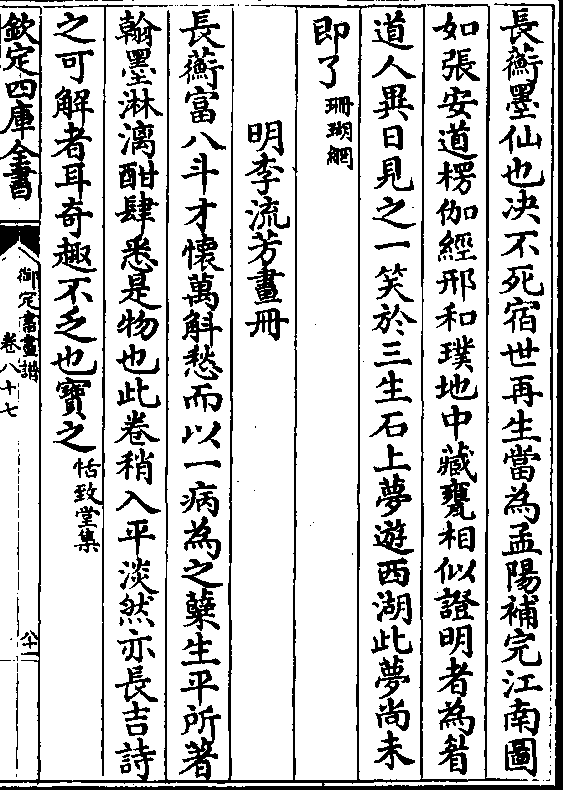 長蘅墨仙也决不死宿世再生當為孟陽補完江南圖
如張安道楞伽經邢和璞地中藏甕相似證明者為朁
道人異日見之一笑於三生石上夢遊西湖此夢尚未
即了珊瑚網
明李流芳畫冊
長蘅富八斗才懷萬斛愁而以一病為之櫱生平所著
翰墨淋漓酣肆悉是物也此卷稍入平淡然亦長吉詩
之可解者耳奇趣不乏也寶之恬致堂集
欽定四庫全書
御定書畫譜
卷八十七